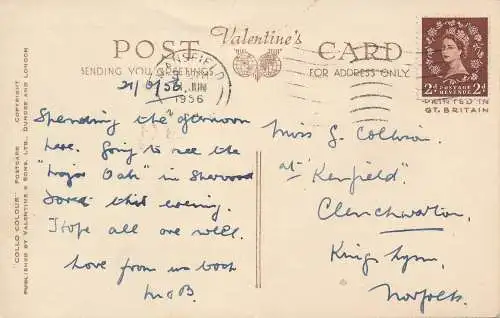 POST Valentine's CARD
SENDING YOU GREETINGS
FOR ADDRESS ONLY
MANSFIELD
JUN
1956
2D POSTAGE REVENUE 2D
PRINTED IN
GT. BRITAIN
Spending the afternoon
here. Going to see the
"Major Oak" in Sherwood
this evening.
I hope all are well.
Love from us both
M & B.
Miss G.
at "Kenfield"
Clenchwarton,
King's Lynn,
Norfolk.
"COLLO COLOUR" POSTCARD COPYRIGHT
PUBLISHED BY VALENTINE & SONS, LTD., DUNDEE AND LONDON